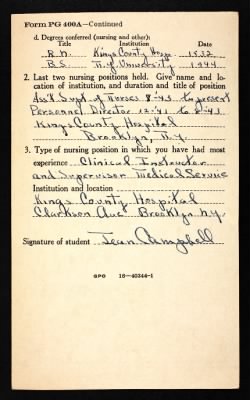 Form PG 400A—Continued
d. Degrees conferred (nursing and other):
Title Institution Date
R.N. Kings County Hosp.
B.S. N.Y. University 1944
2. Last two nursing positions held. Give name and lo-
cation of institution, and duration and title of position
Ass't Supt. of Nurses 8-'43 to present
Personnel Director 12-'41 to 8-'43
Kings County Hospital
Brooklyn, N.Y.
3. Type of nursing position in which you have had most
experience Clinical Instructor
and Supervisor Medical Service
Institution and location
Kings County Hospital
Clarkson Ave. Brooklyn N.Y.
Signature of student Jean Campbell
GPO 16—40344-1